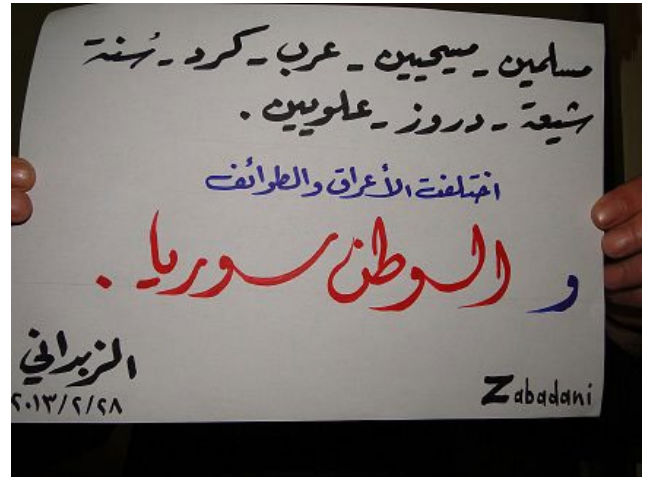 مسلمين - مسيحيين - عرب - كرد - سُنة
شيعة - دروز - علويين .
اختلفت الأعراق والطوائف
و الوطن سوريا .
الزبداني
٢٠١٣/٢/٢٨
Zabadani